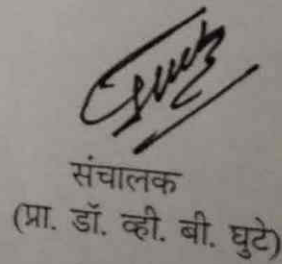 संचालक
(प्रा. डॉ. व्ही. बी. घुटे)